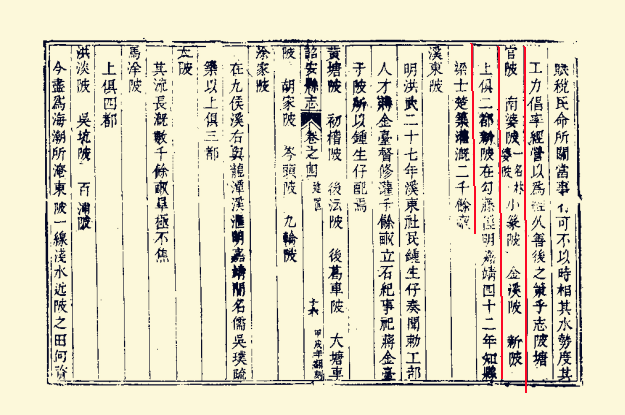 賦稅民命所關當事者可不以時相其水勢度其
工力倡率經營以為經久善後之策乎志陂塘
官陂 南婆陂一名林婆陂 小篆陂 金溪陂 新陂
上俱二都新陂在勾 明嘉靖四十二年知縣
梁士楚築灌溉二千餘
溪東陂
明洪武二十七年溪東社民鍾生仔奏聞勅工部
人才蔣金臺督修灌千餘畝立石紀事祀蔣金臺
于陂所以鍾生仔配焉
黃塘陂 初稽陂 後沄陂 後葛車陂 大塘車
詔安縣志 卷之四 甲戌年
陂 胡家陂 岑頭陂 九輪陂
涂家陂
在九侯溪右與龍潭溪滙明嘉靖間名儒吳璞疏
築以上俱三都
大陂
其流長溉數千餘畝旱極不焦
馬洋陂
上俱四都
洪淡陂 吳坑陂 百浦陂
今盡為海潮所淹東陂一線淺水近陂之田何